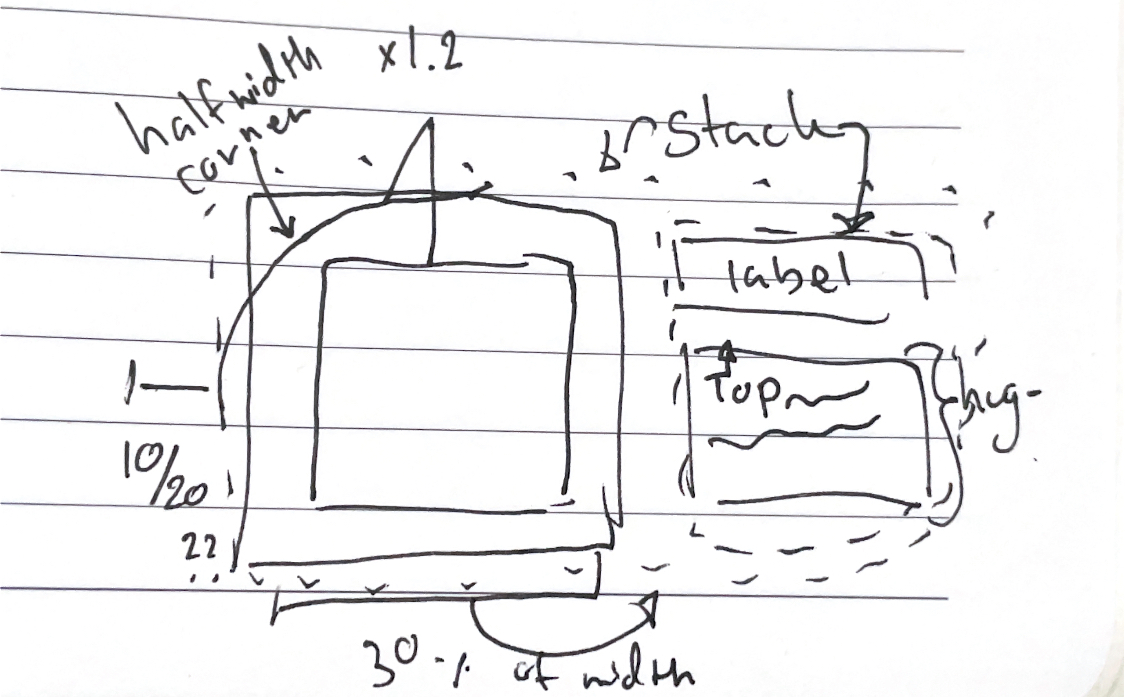 half width
corner
x1.2
Stack
label
Top
hug
10/20
??
30 % of width